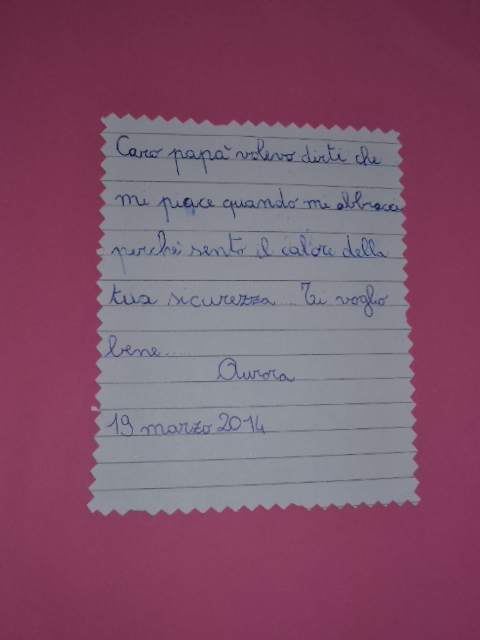 Caro papà volevo dirti che
mi piace quando mi abbracci
perché sento il calore della
tua sicurezza... Ti voglio
bene...
Aurora
19 marzo 2014